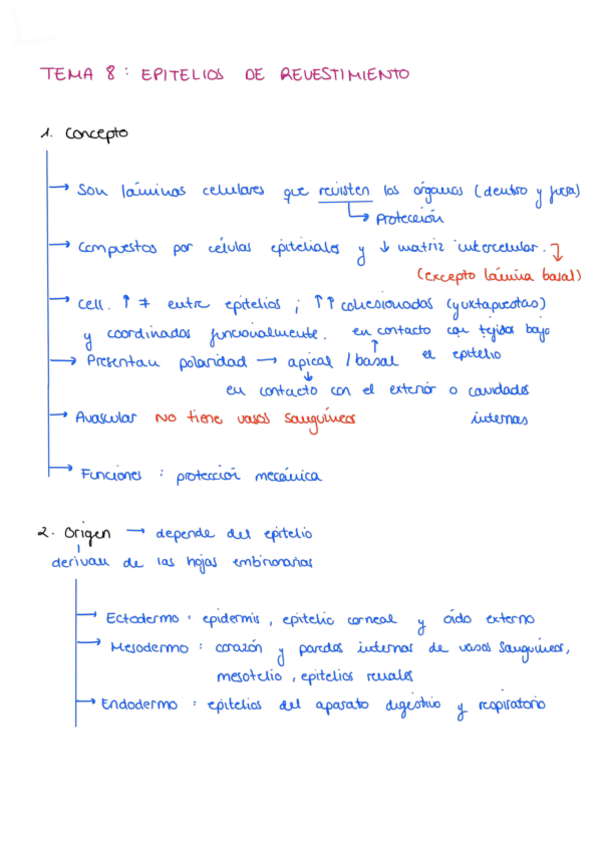 TEMA 8: EPITELIOS DE REVESTIMIENTO
1. Concepto
→ Son láminas celulares que revisten los órganos (dentro y fuera)
↳ Protección
→ Compuestos por células epiteliales y ↓ matriz intercelular.
(excepto lámina basal)
→ cell. ↑ ≠ entre epitelios ; ↑↑ cohesionados (yuxtapuestas)
y coordinados funcionalmente. en contacto con tejido bajo
→ Presentan polaridad → apical / basal el epitelio
en contacto con el exterior o cavidades
internas
→ Avascular NO tiene vasos sanguíneos
→ Funciones : protección mecánica
2. Origen → depende del epitelio
derivan de las hojas embrionarias
→ Ectodermo : epidermis, epitelio corneal y oído externo
→ Mesodermo : corazón y paredes internas de vasos sanguíneos,
mesotelio, epitelios renales
→ Endodermo : epitelios del aparato digestivo y respiratorio